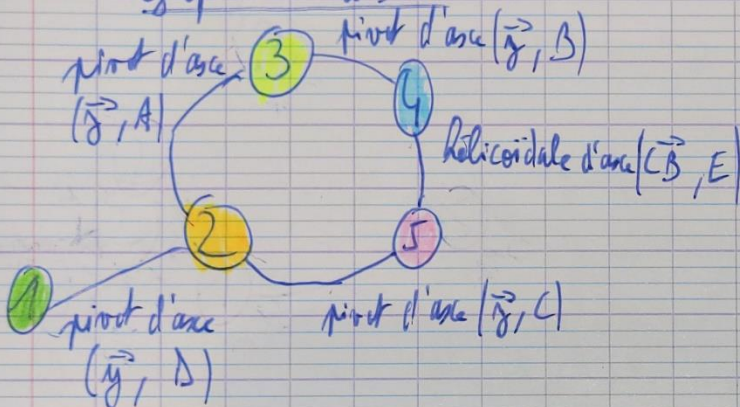 3
pivot d'axe (z⃗, B)
pivot d'axe
(z⃗, A)
4
hélicoïdale d'axe (CB⃗, E)
2
5
1
pivot d'axe
(y⃗, D)
pivot d'axe (z⃗, C)